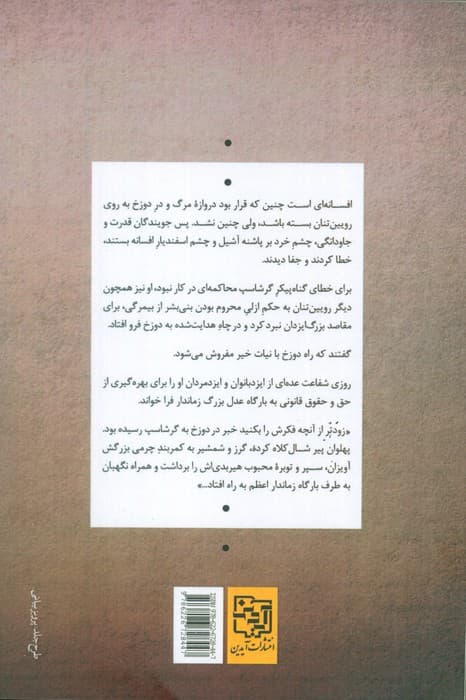 افسانه‌ای است چنین که قرار بود دروازهٔ مرگ و درِ دوزخ به روی
رویین‌تنان بسته باشد، ولی چنین نشد. پس جویندگان قدرت و
جاودانگی، چشم خرد بر پاشنه آشیل و چشم اسفندیارِ افسانه بستند،
خطا کردند و جفا دیدند.
برای خطای گناه‌پیکرِ گرشاسپ محاکمه‌ای در کار نبود، او نیز همچون
دیگر رویین‌تنان به حکم ازلیِ محروم بودن بنی‌بشر از بیمرگی، برای
مقاصد بزرگ‌ایزدان نبرد کرد و در چاهِ هدایت‌شده به دوزخ فرو افتاد.
گفتند که راه دوزخ با نیات خیر مفروش می‌شود.
روزی شفاعت عده‌ای از ایزدبانوان و ایزدمردان او را برای بهره‌گیری از
حق و حقوق قانونی به بارگاه عدل بزرگ زماندار فرا خواند.
«زودتر از آنچه فکرش را بکنید خبر در دوزخ به گرشاسپ رسیده بود.
پهلوان پیر شال‌کلاه کرده، گرز و شمشیر به کمربندِ چرمی بزرگش
آویزان، سپر و توبرهٔ محبوب هیربدی‌اش را برداشت و همراه نگهبان
به طرف بارگاه زماندار اعظم به راه افتاد...»
انتشارات آیدین
ISBN: 978-622-6728-44-7
9786226728447
طرح جلد: پرویز بیانی